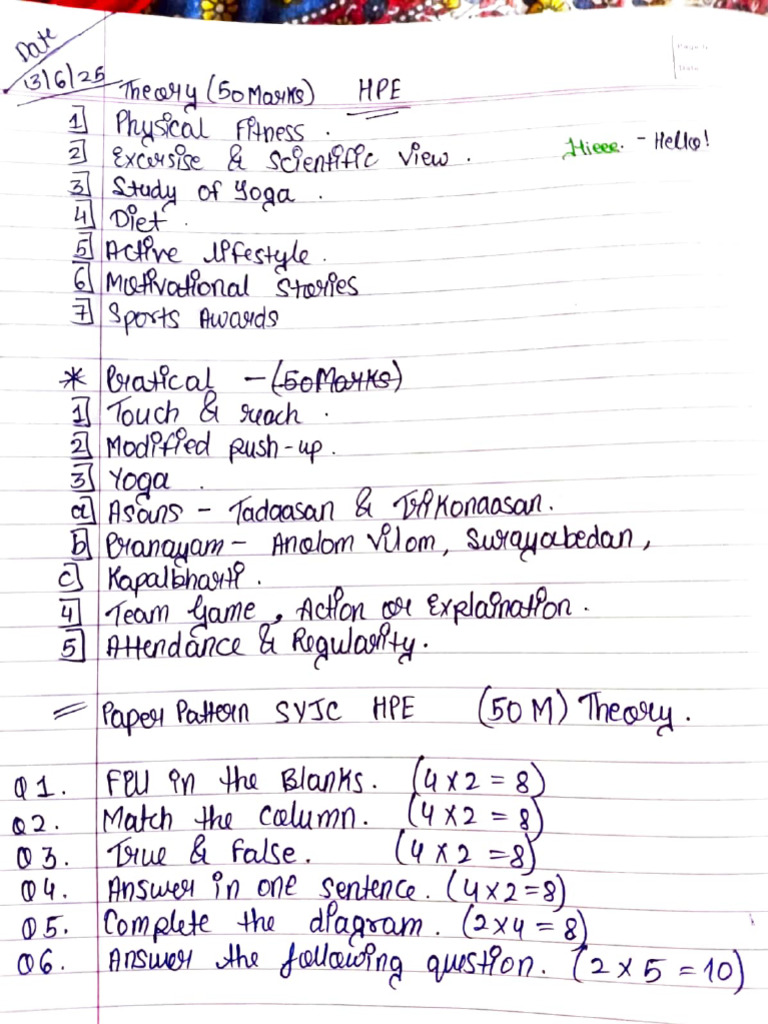 Date
13/6/25
Theory (50 Marks) HPE
1] Physical Fitness.
2] Excersise & Scientific View.
Hieee. - Hello!
3] Study of Yoga.
4] Diet.
5] Active lifestyle.
6] Motivational Stories
7] Sports Awards
* Pratical - (50 Marks)
1] Touch & reach.
2] Modified push-up.
3] Yoga.
a] Asans - Tadaasan & Trikonaasan.
b] Pranayam - Anolom Vilom, Surayabedan,
c] Kapalbharti.
4] Team Game, Action or Explaination.
5] Attendance & Regularity.
= Paper Pattern SYJC HPE (50 M) Theory.
Q1. Fill in the Blanks. (4 x 2 = 8)
Q2. Match the column. (4 x 2 = 8)
Q3. True & False. (4 x 2 = 8)
Q4. Answer in one sentence. (4 x 2 = 8)
Q5. Complete the diagram. (2 x 4 = 8)
Q6. Answer the following question. (2 x 5 = 10)